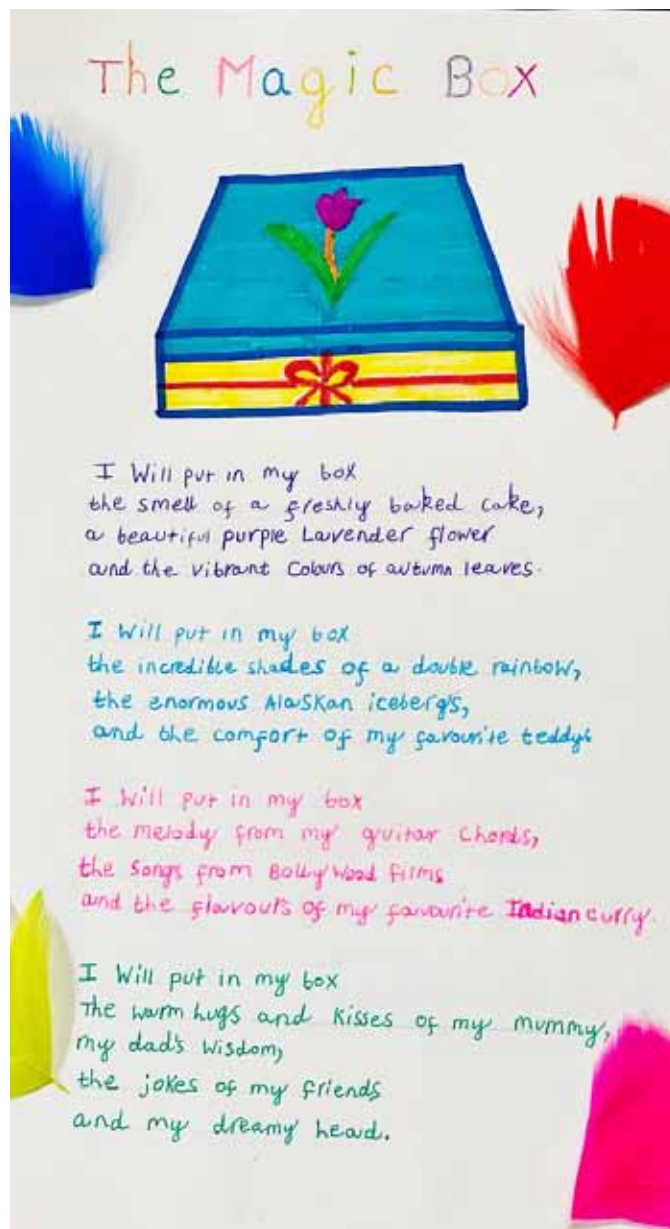 The Magic Box
I Will put in my box
the smell of a freshly baked cake,
a beautiful purple Lavender flower
and the vibrant Colours of autumn leaves.
I Will put in my box
the incredible shades of a double rainbow,
the enormous Alaskan iceberg's,
and the comfort of my favourite teddy.
I Will put in my box
the melody from my guitar Chords,
the Songs from Bollywood films
and the flavours of my favourite Indian curry.
I Will put in my box
The warm hugs and kisses of my mummy,
my dad's wisdom,
the jokes of my friends
and my dreamy head.